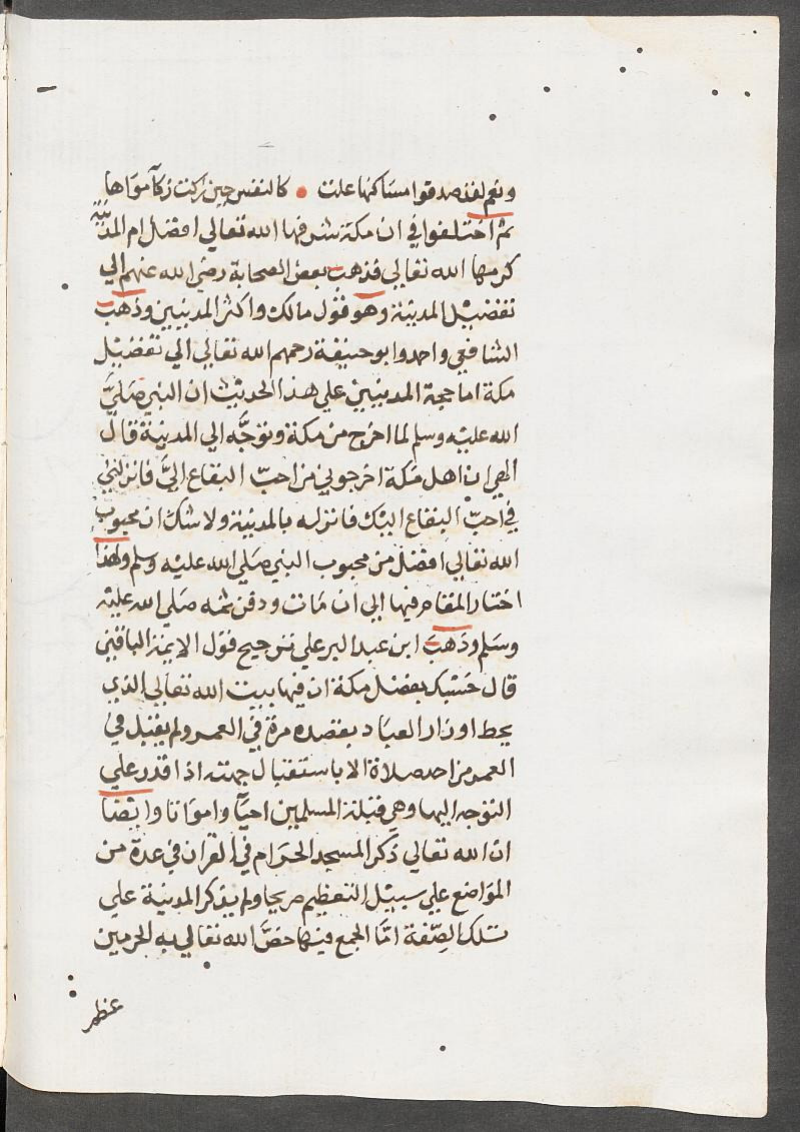 ونعم لقد صدقوا مساكنها علت • كالنفس حين زكت زكآ مؤاها
ثم اختلفوا في ان مكة شرفها الله تعالي افضل ام المدينة
كرمها الله تعالي فذهب بعض الصحابة رضي الله عنهم الي
تفضيل المدينة وهو قول مالك واكثر المدنيين وذهب
الشافعي واحمد وابو حنيفة رحمهم الله تعالي الي تفضيل
مكة اما حجة المدنيين علي هذا الحديث ان النبي صَلَّيَ
الله عليْه وسلم لما اخرج من مكة وتوجَّه الي المدينة قال
الهي ان اهل مَكة اخرجوني من احبّ البقاع اليَّ فانزلني
في احبّ البقاع اليْك فانزله بالمدينة ولا شك ان محبوب
الله تعالي افضل من محبوب النبي صَلي الله عليْه وسلم ولهذا
اختار المقام فيها الي ان مَات ودفن ثمه صَلي الله عليْه
وسَلم وذَهبَ ابن عبد البر علي ترجيح قول الايمة الباقين
قال حسْبك بفضل مكة ان فيها بيت الله تعالي الذي
يحط اوزار العبَاد بقصده مرة في العمر ولم يقبل في
العمر من احد صلاة الا باستقبال جهته اذا قدر علي
التوجه اليها وهي قبلة المسلمين احيآ وامواتا وايضا
ان الله تعالي ذَكر المسجد الحرَام في القران في عدة من
الموَاضع علي سبيْل التعظيم صريحا ولم يذكر المدينة علي
تلك الصِّفة امَّا الجمع فيها خصَّ الله تعالي به الحرمين
عظم